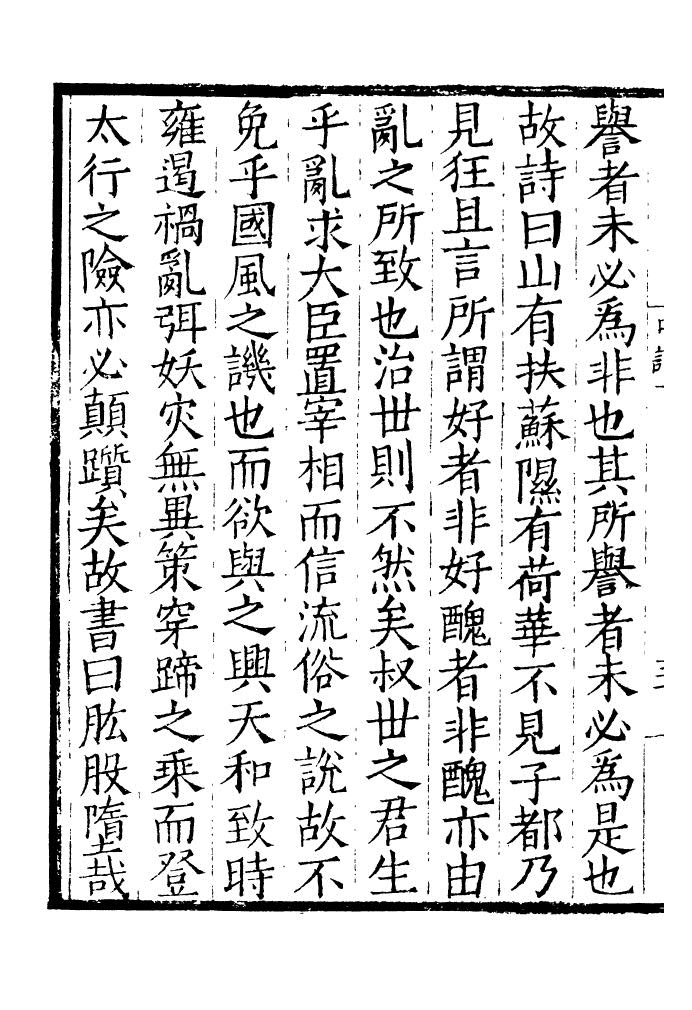 譽者未必爲非也其所譽者未必爲是也
故詩曰山有扶蘇隰有荷華不見子都乃
見狂且言所謂好者非好醜者非醜亦由
亂之所致也治丗則不然矣叔丗之君生
乎亂求大臣置宰相而信流俗之說故不
免乎國風之譏也而欲與之興天和致時
雍遏禍亂弭妖灾無異策穿蹄之乘而登
太行之險亦必顛躓矣故書曰肱股墮哉